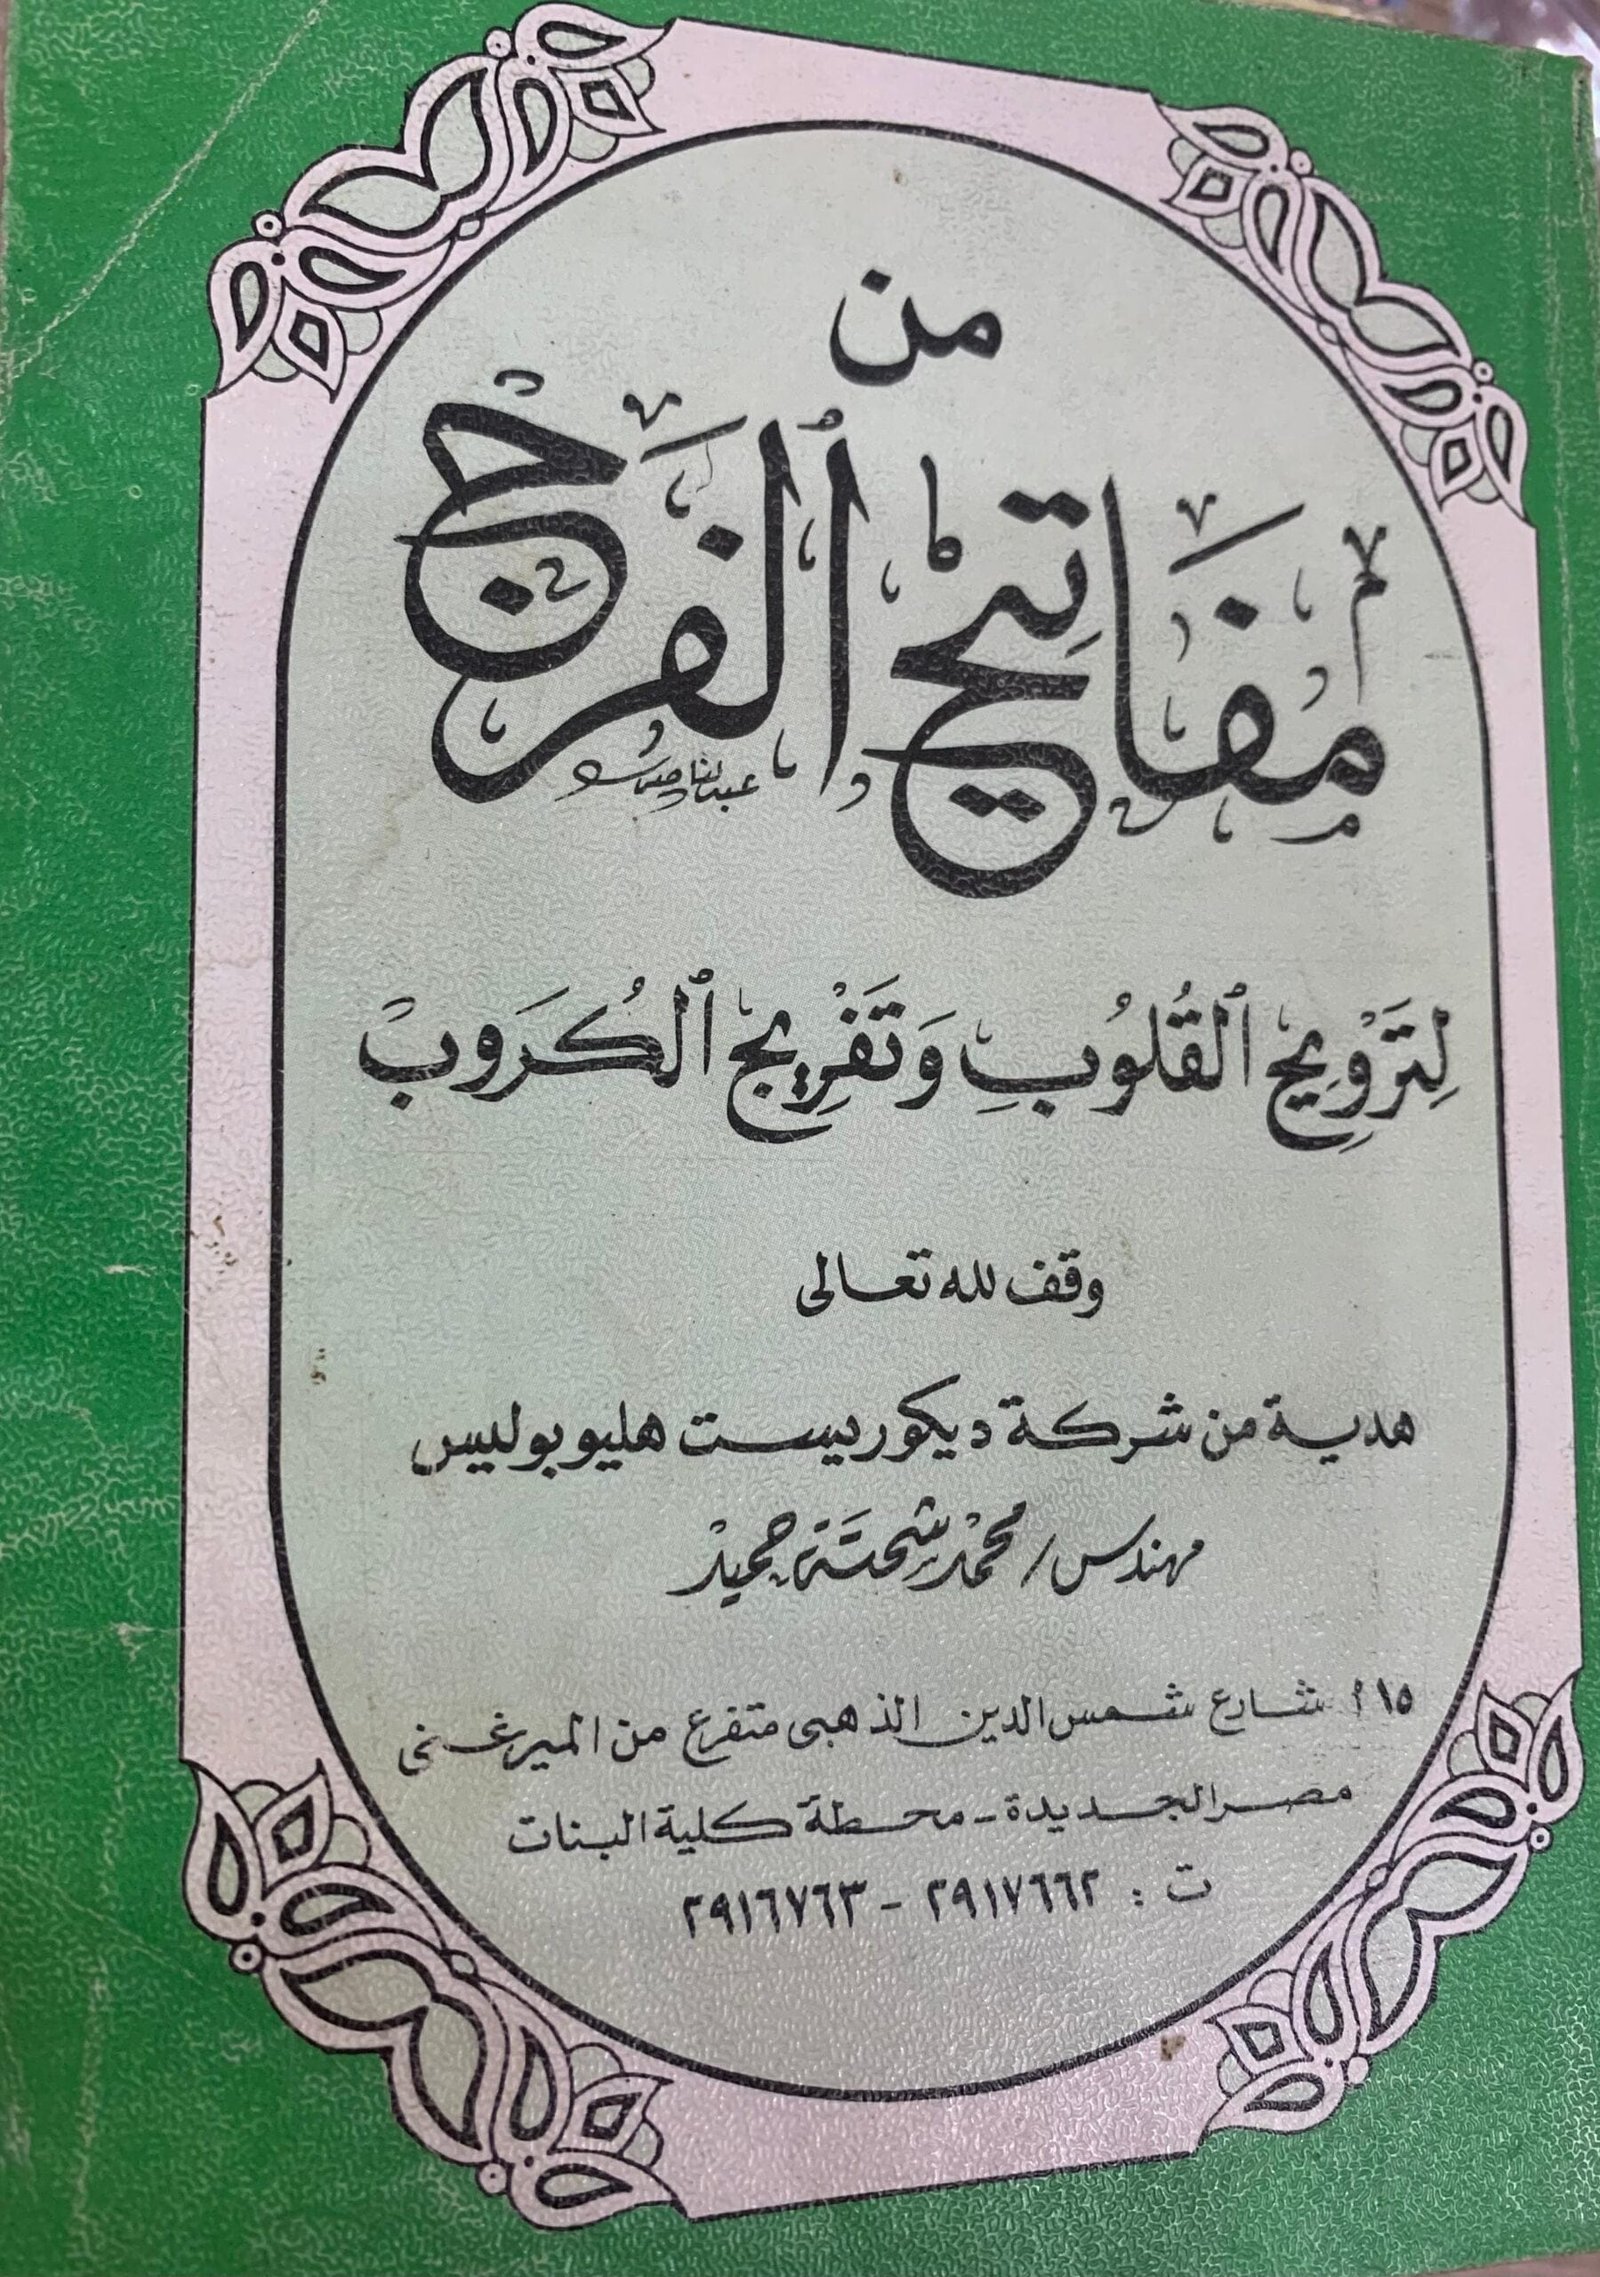 من
مفاتيح الفرج
لِتَرْوِيحِ ٱلْقُلُوبِ وَتَفْرِيجِ ٱلْكُرَوبْ
وقف لله تعالى
هدية من شركة ديكوريست هليوبوليس
مهندس / محمد شحتة حميد
١٥ أ شارع شمس الدين الذهبى متفرع من الميرغنى
مصر الجديدة - محطة كلية البنات
ت : ٢٩١٧٦٦٢ - ٢٩١٦٧٦٣